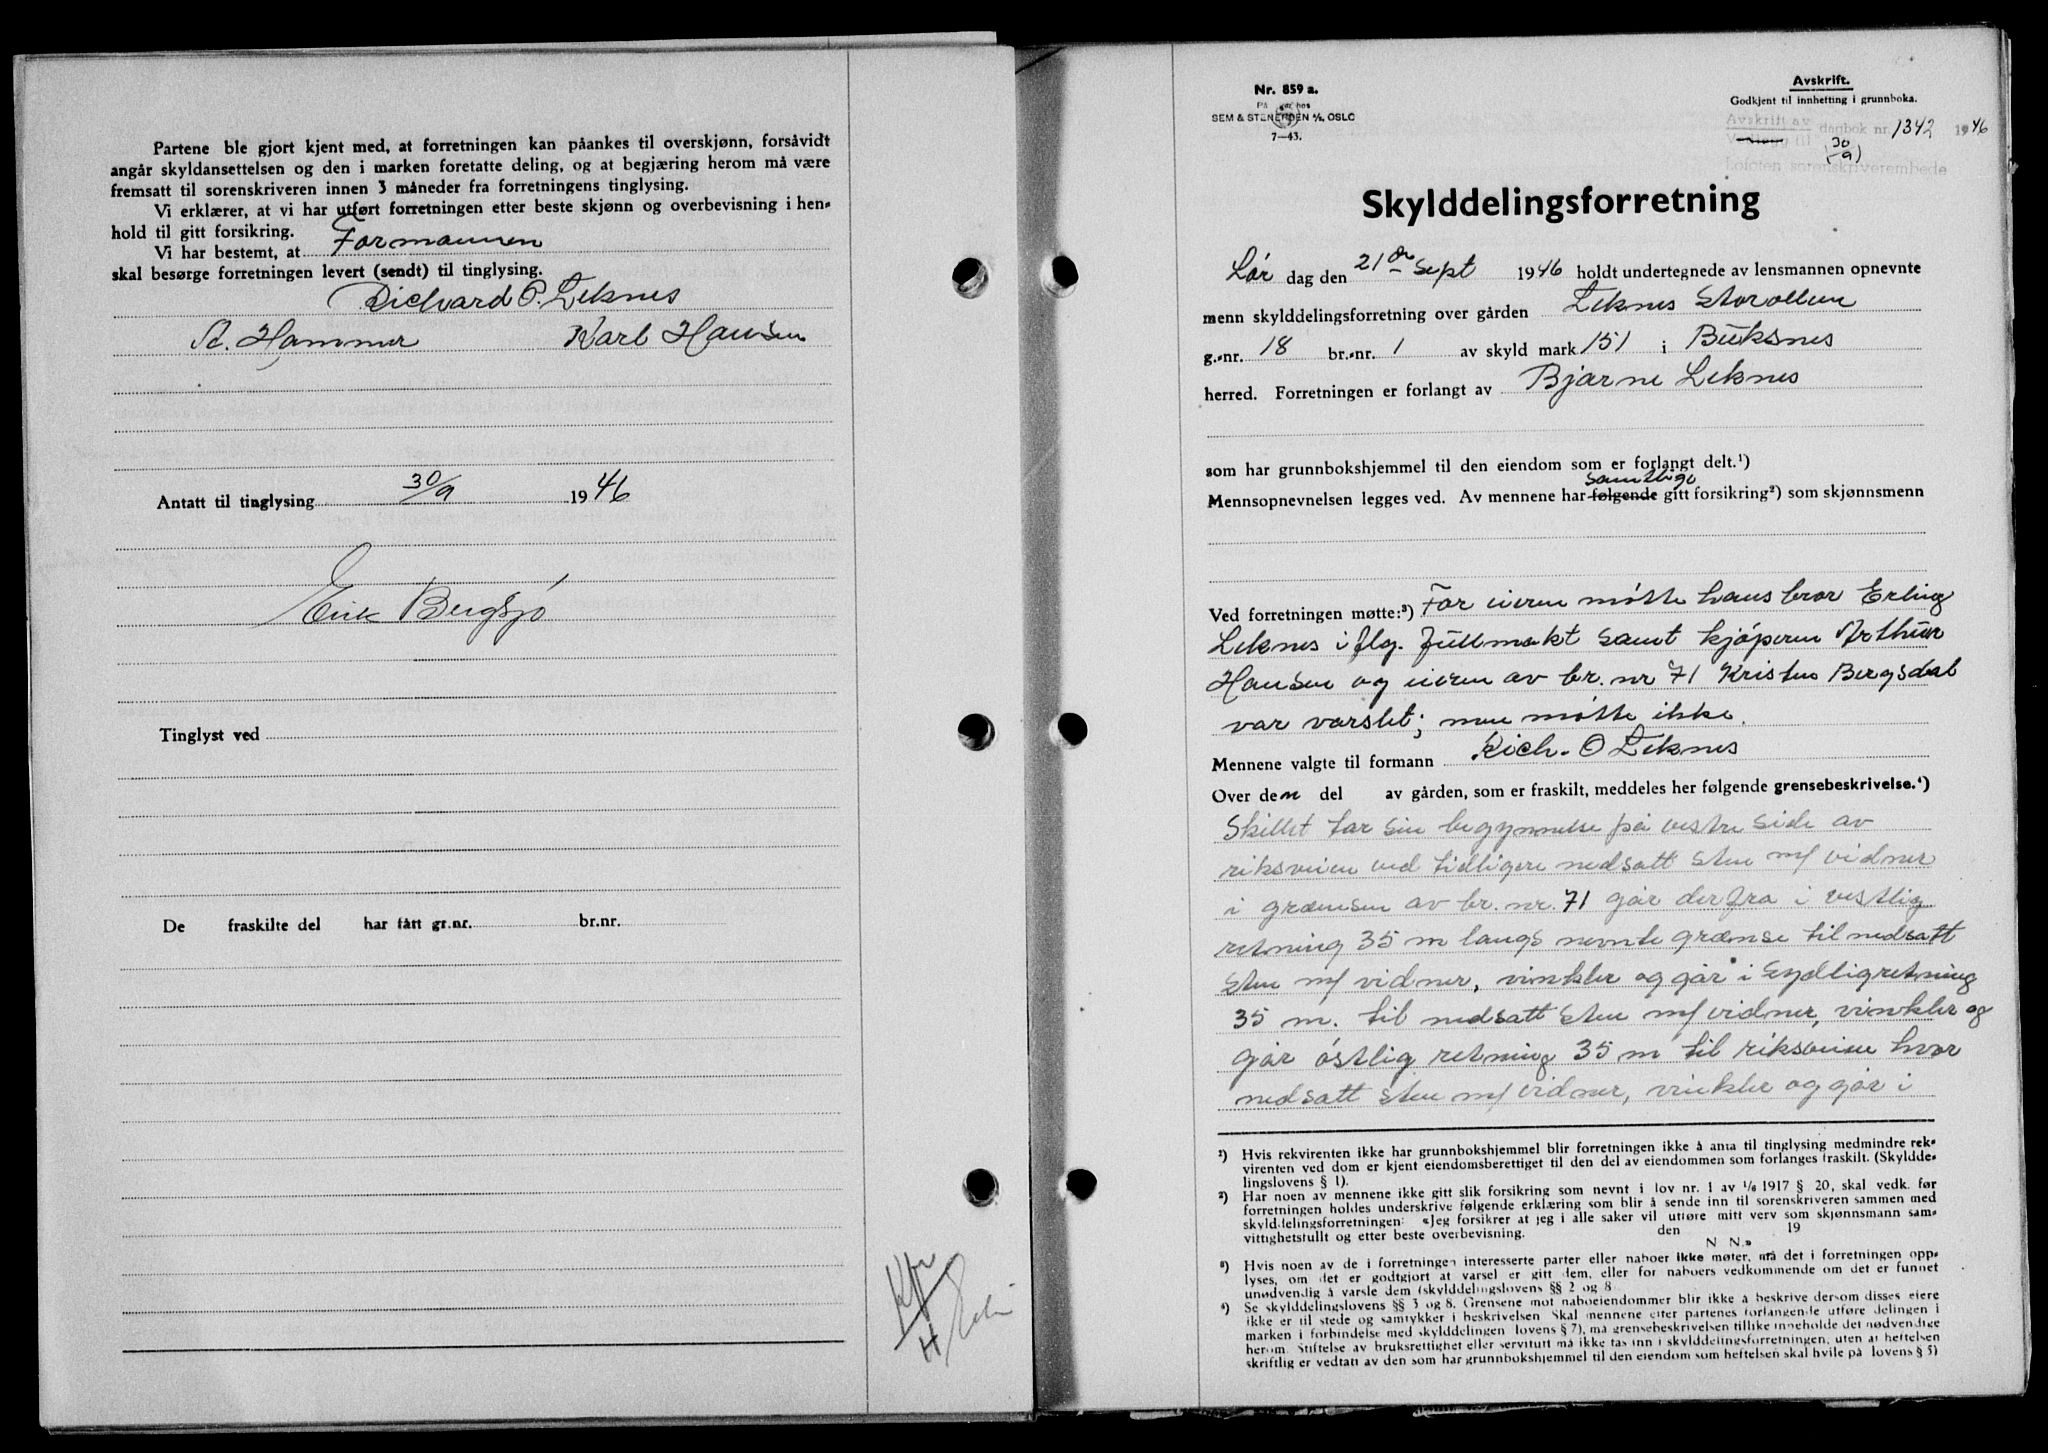 Partene ble gjort kjent med, at forretningen kan påankes til overskjønn, forsåvidt
angår skyldansettelsen og den i marken foretatte deling, og at begjæring herom må være
fremsatt til sorenskriveren innen 3 måneder fra forretningens tinglysing.
Vi erklærer, at vi har utført forretningen etter beste skjønn og overbevisning i hen-
hold til gitt forsikring.
Vi har bestemt, at Formannen
skal besørge forretningen levert (sendt) til tinglysing.
Richard O. Leknes
A. Hammer Karl Hansen
Antatt til tinglysing 30/9 1946
Erik Bergsjø
Tinglyst ved
De fraskilte del har fått gr.nr. br.nr.
Nr. 859 a.
På lager hos
SEM & STENERSEN A/S, OSLO
7—43.
Avskrift.
Godkjent til innhetting i grunnboka.
Avskrift av dagbok nr. 1342 1946
Vedlegg til 30/9)
Lofoten sorenskriverembede
Skylddelingsforretning
Lør dag den 21de Sept 1946 holdt undertegnede av lensmannen opnevnte
menn skylddelingsforretning over gården Leknes Storollun
g.-nr. 18 br.-nr. 1 av skyld mark 151 i Buksnes
herred. Forretningen er forlangt av Bjarne Leknes
som har grunnbokshjemmel til den eiendom som er forlangt delt.¹)
samtlige
Mennsopnevnelsen legges ved. Av mennene har følgende gitt forsikring²) som skjønnsmenn
Ved forretningen møtte:³) For eieren møtte hans bror Erling
Leknes iflg. fullmakt samt kjøperen Arthur
Hansen og eieren av br. nr 71 Kristen Bergsdal
var varslet; men møtte ikke.
Mennene valgte til formann Rich. O Leknes
Over den del av gården, som er fraskilt, meddeles her følgende grensebeskrivelse.⁴)
Skillet tar sin begynnelse på vestre side av
riksveien ved tidligere nedsatt sten m/ vidner
i græmsen av br. nr. 71 går derfra i vestlig
retning 35 m langs nevnte græmse til nedsatt
sten m/ vidner, vinkler og går i sydlig retning
35 m. til nedsatt sten m/ vidner, vinkler og
går østlig retning 35 m til riksveien hvor
nedsatt sten m/ vidner, vinkler og går i
¹) Hvis rekvirenten ikke har grunnbokshjemmel blir forretningen ikke å anta til tinglysing medmindre rek-
virenten ved dom er kjent eiendomsberettiget til den del av eiendommen som forlanges fraskilt. (Skyldde-
lingslovens § 1).
²) Har noen av mennene ikke gitt slik forsikring som nevnt i lov nr. 1 av 1/6 1917 § 20, skal vedk. før
forretningen holdes underskrive følgende erklæring som blir å sende inn til sorenskriveren sammen med
skylddelingsforretningen: «Jeg forsikrer at jeg i alle saker vil utføre mitt verv som skjønnsmann sam-
vittighetsfullt og etter beste overbevisning. den 19
N N.»
³) Hvis noen av de i forretningen interesserte parter eller naboer ikke møter, må det i forretningen opp-
lyses, om det er godtgjort at varsel er gitt dem, eller for naboers vedkommende om det er funnet
unødvendig å varsle dem (skylddelingslovens §§ 2 og 8
⁴) Se skylddelingslovens §§ 3 og 8. Grensene mot naboeiendommer blir ikke å beskrive dersom disses eiere
ikke er til stede og samtykker i beskrivelsen Skal mennene etter partenes forlangende utføre delingen i
marken i forbindelse med skylddelingen lovens § 7), må grensebeskrivelsen tillike inneholde det nødvendige
herom. Stiftelse av bruksrettighet eller servitutt må ikke tas inn i skylddelingsforretningen, uten at heftelsen
skriftlig er vedtatt av den som har grunnbokshjemmel til den eiendom som heftelsen skal hvile på lovens § 5)